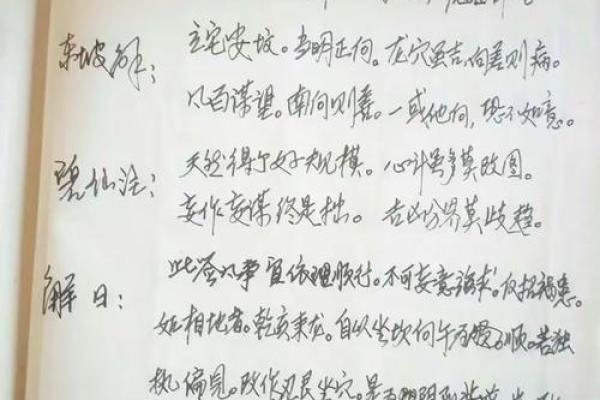 东坡解：立宅安坟。当明正向。龙穴虽吉，向差则病。
凡百谋望。南向则善。一或他向，恐不如意。
碧仙注：天然得个好规模。心计虽多莫改图。
妄作妄谋终是拙。吉凶分界莫歧趋。
解曰：此签凡事宜依理顺行。不可妄意强求。仅招祸患。
如相地者。乾亥来龙。自以坐坎向午为顺。若独
执偏见。改作